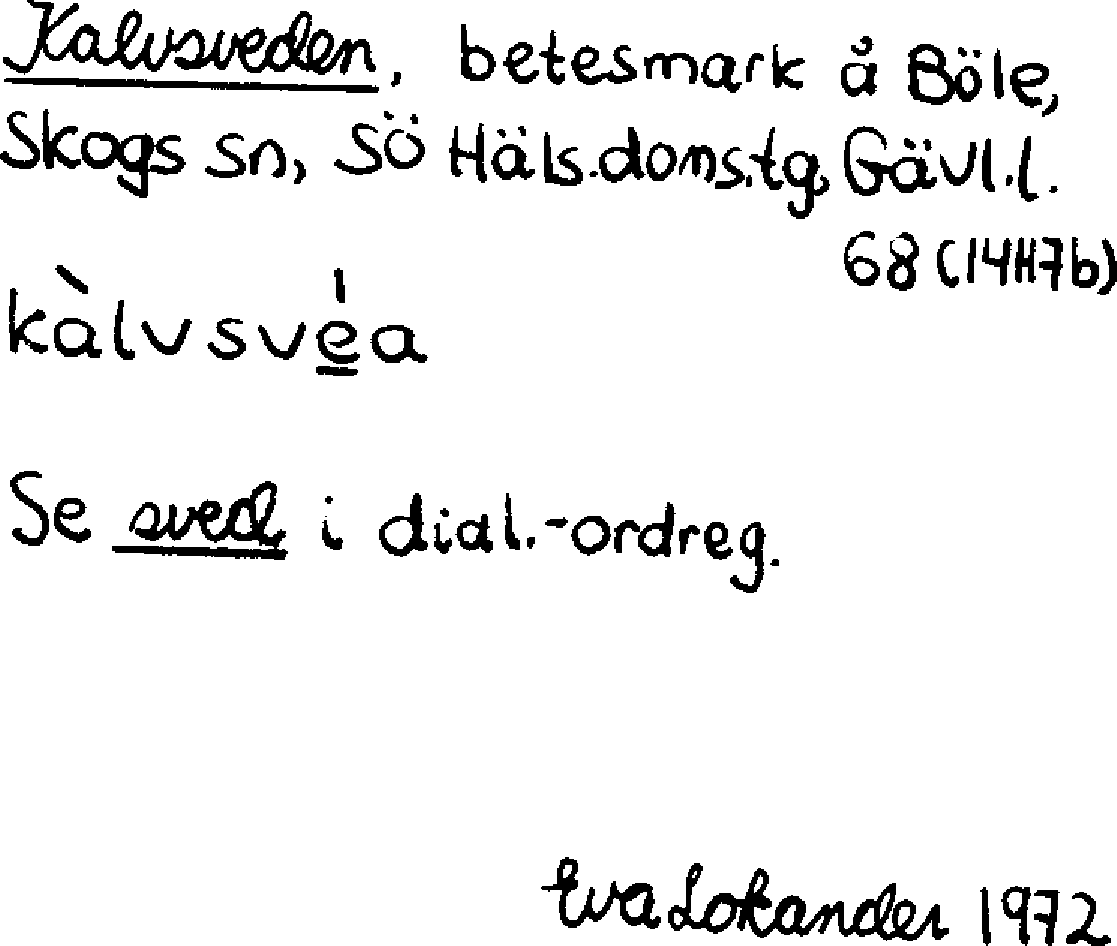 Kalvsveden, betesmark å Böle,
Skogs sn, Sö Häls.doms.tg, Gävl.l.
68 (14H7b)
kàlvsve̲̍a
Se sved i dial.-ordreg.
Eva Lokander 1972